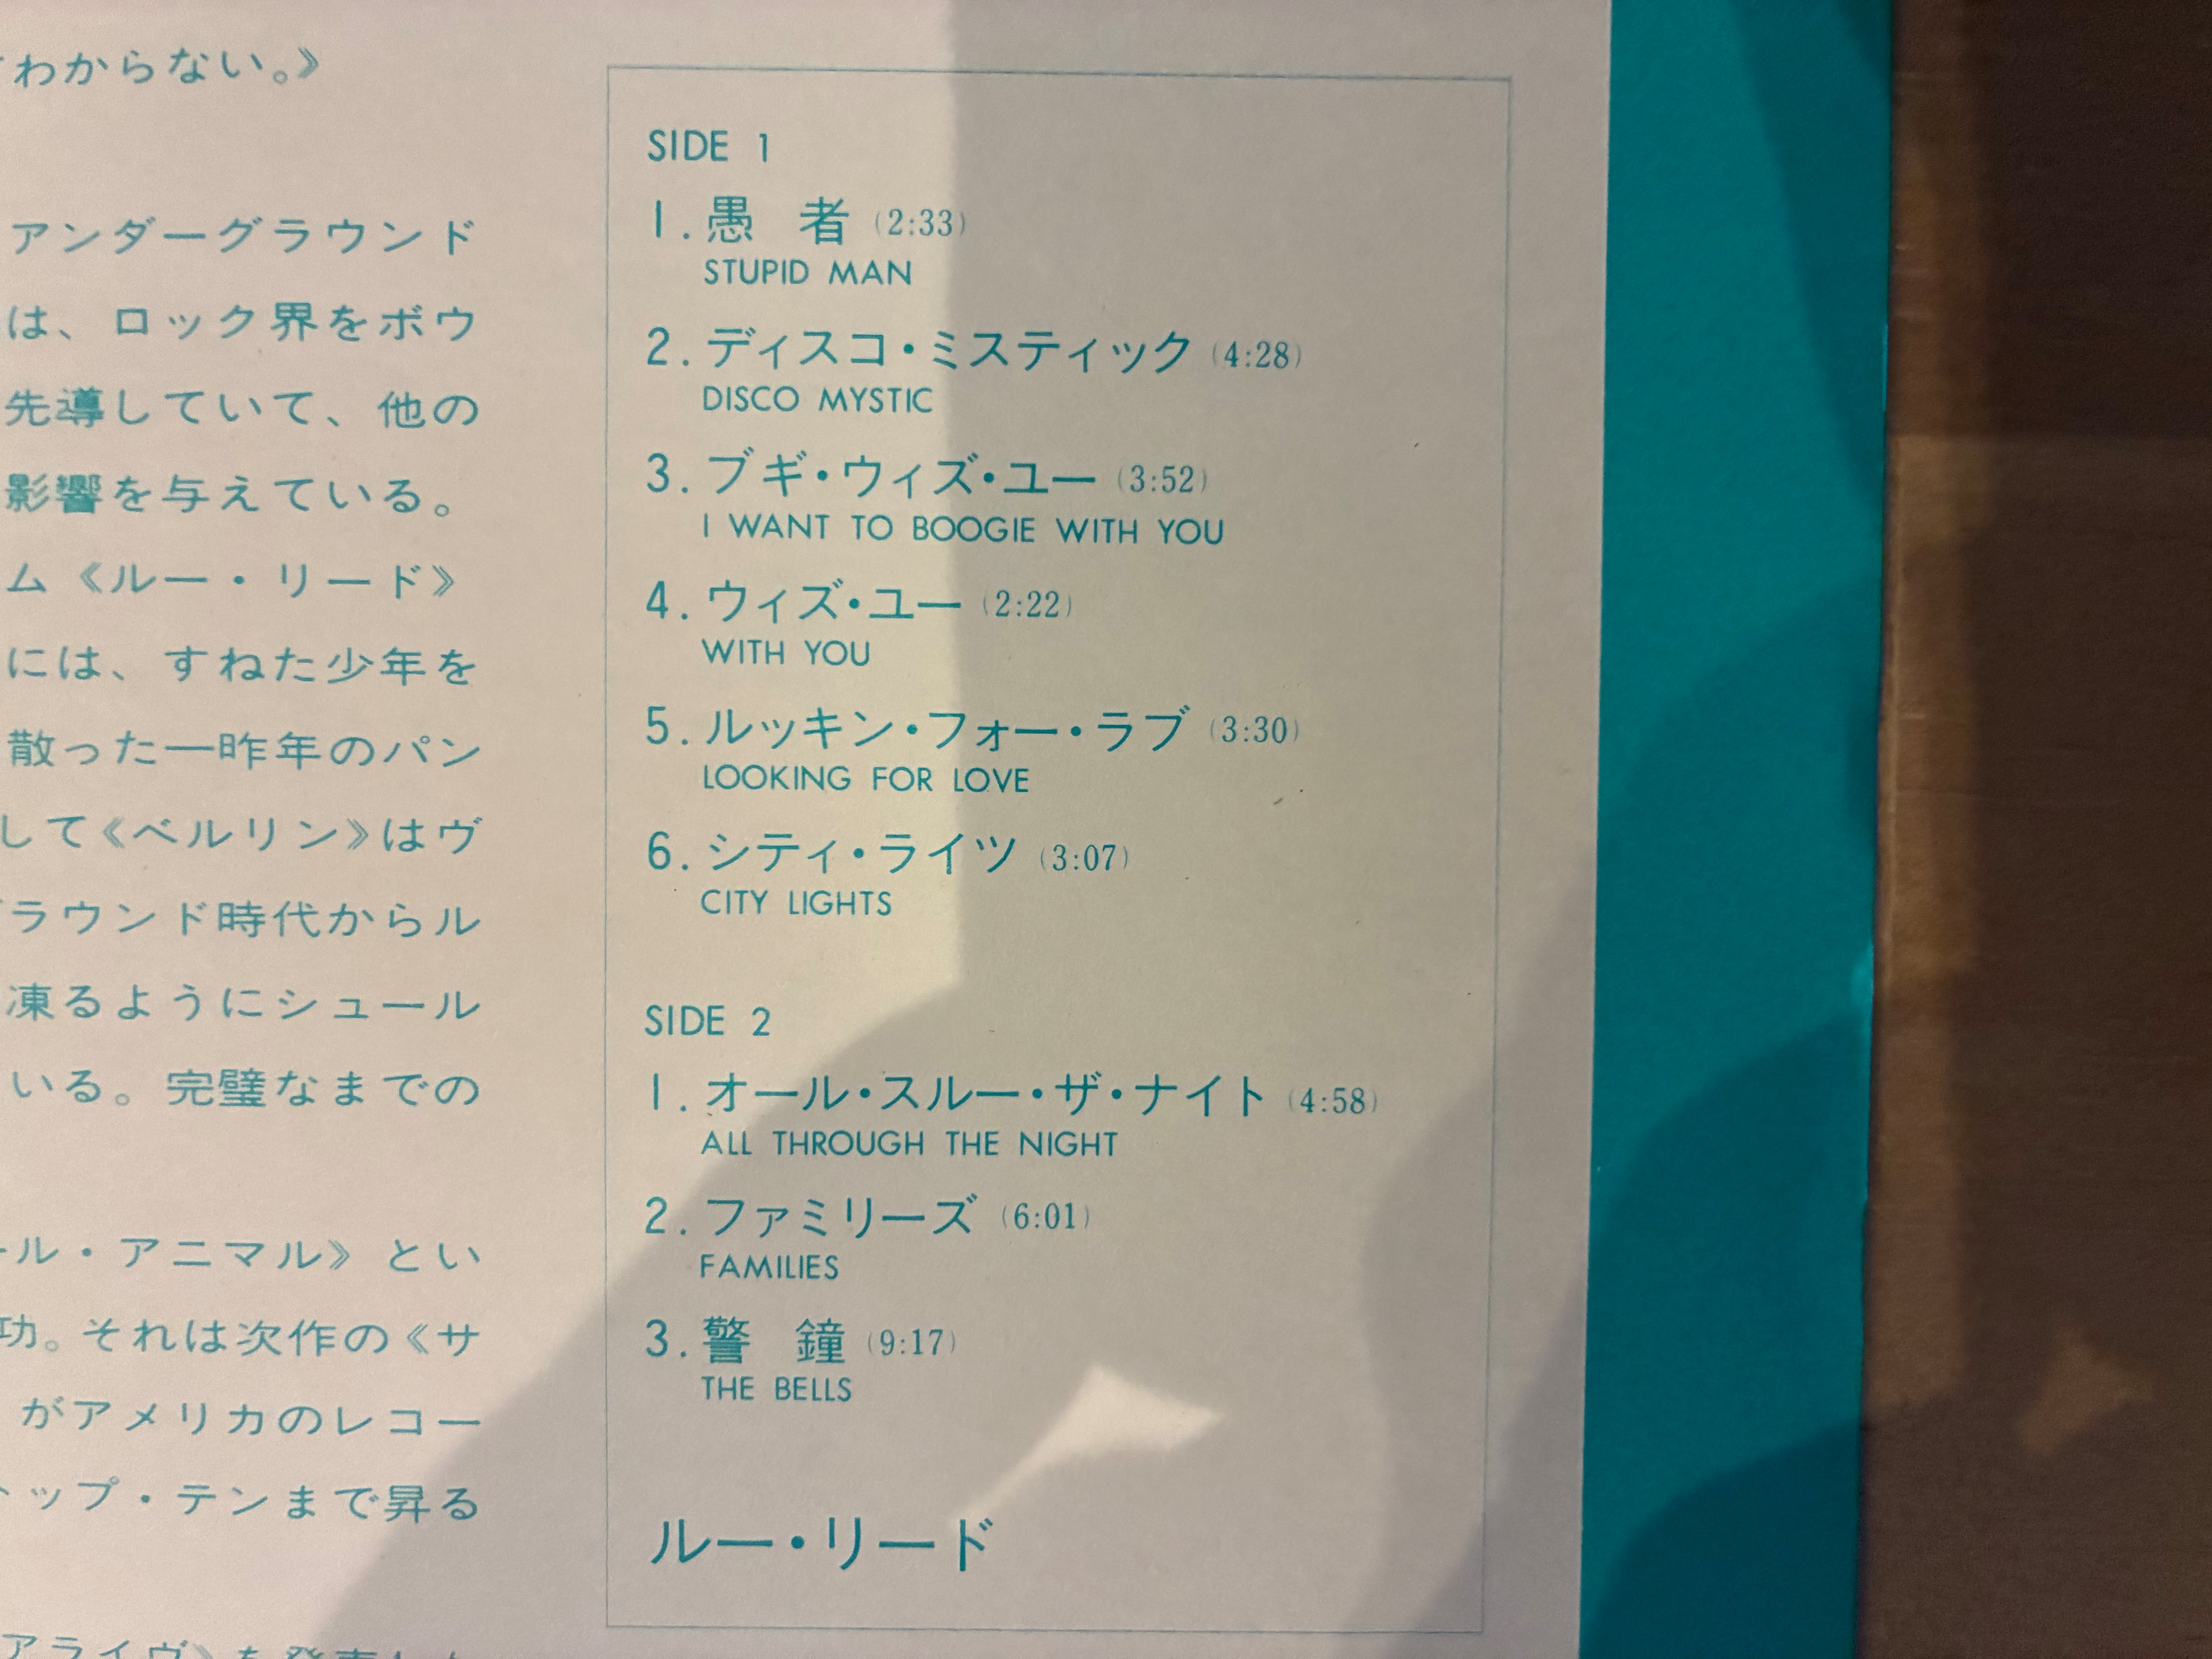 わからない。》
アンダーグラウンド
は、ロック界をボウ
先導していて、他の
影響を与えている。
ム《ルー・リード》
には、すねた少年を
散った一昨年のパン
して《ベルリン》はヴ
ラウンド時代からル
凍るようにシュール
いる。完璧なまでの
ール・アニマル》とい
功。それは次作の《サ
がアメリカのレコー
トップ・テンまで昇る
アライヴ》を発表した
SIDE 1
1.愚 者 (2:33)
STUPID MAN
2.ディスコ・ミスティック (4:28)
DISCO MYSTIC
3.ブギ・ウィズ・ユー (3:52)
I WANT TO BOOGIE WITH YOU
4.ウィズ・ユー (2:22)
WITH YOU
5.ルッキン・フォー・ラブ (3:30)
LOOKING FOR LOVE
6.シティ・ライツ (3:07)
CITY LIGHTS
SIDE 2
1.オール・スルー・ザ・ナイト (4:58)
ALL THROUGH THE NIGHT
2.ファミリーズ (6:01)
FAMILIES
3.警 鐘 (9:17)
THE BELLS
ルー・リード